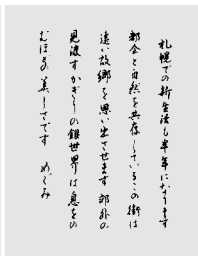 札幌での新生活も半年になります
都会と自然を共存しているこの街は
遠い故郷を思い出させます 郊外の
見渡すかぎりの銀世界は息をの
むほどの美しさです めぐみ